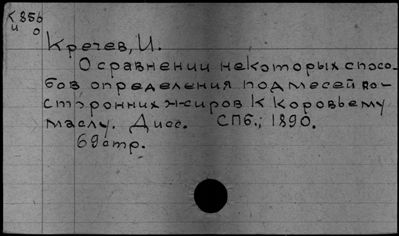 К 856
и о
Кречев, И.
О сравнении некоторых спосо-
бов определения подмесей по-
сторонних жиров к коровьему
маслу. Дисс. СПб., 1890.
69 стр.